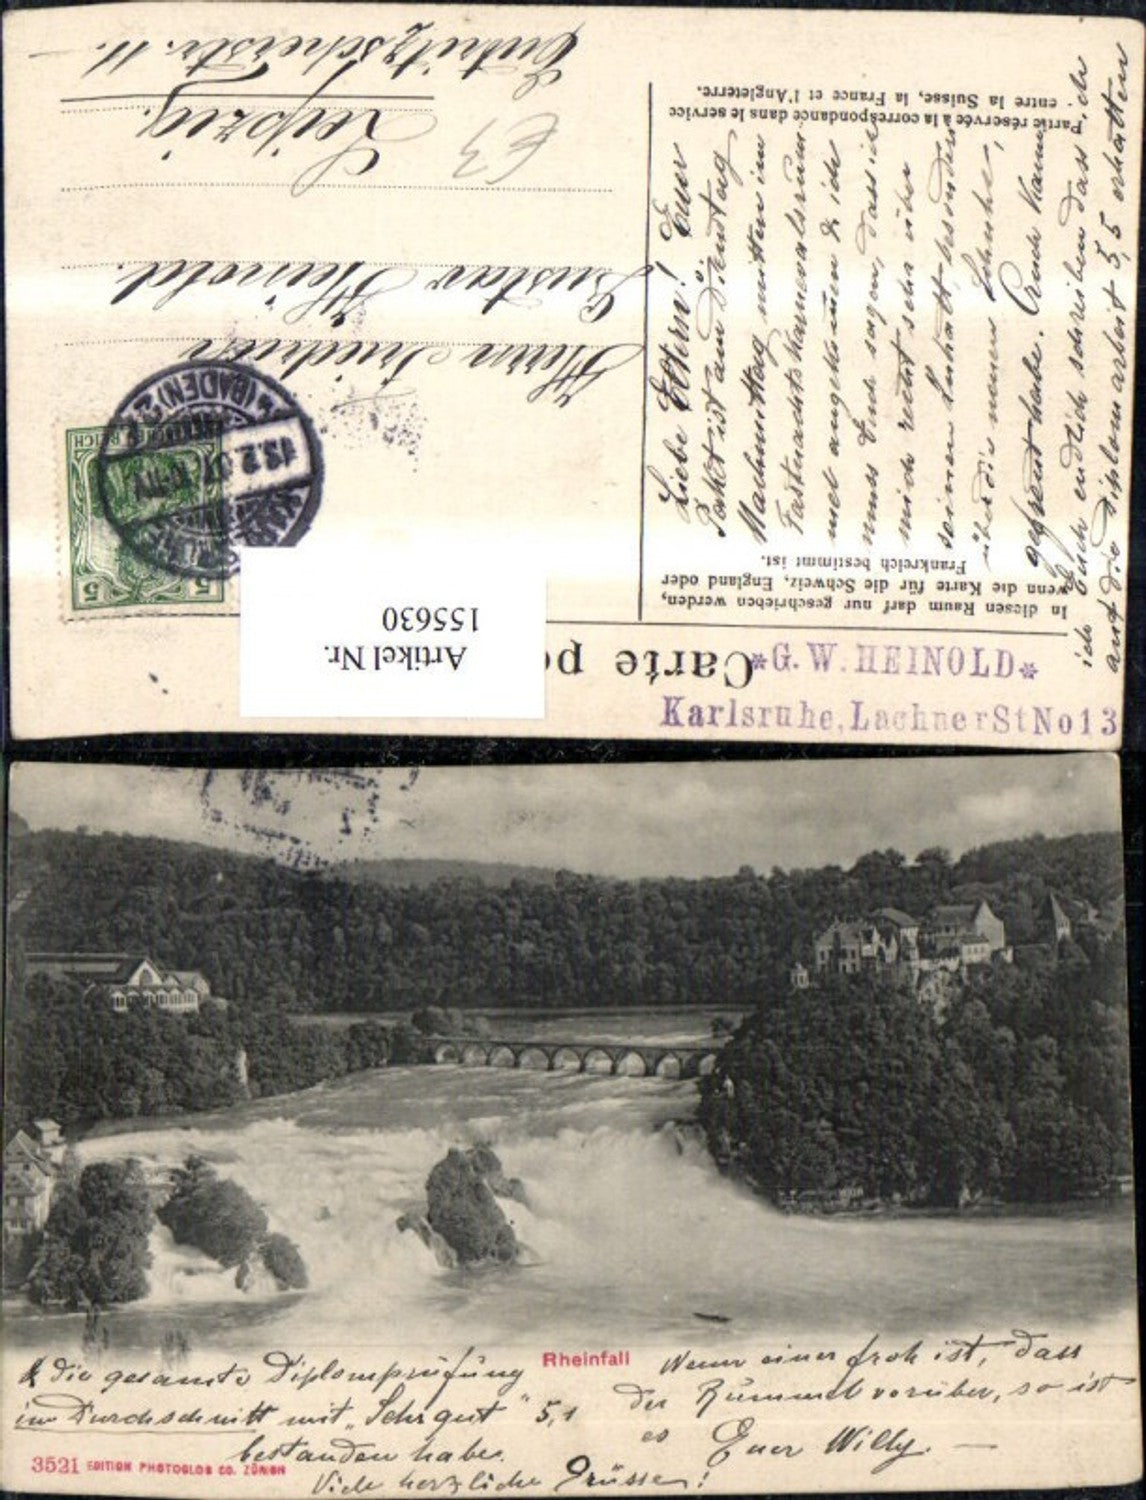 Carte po
Artikel Nr.
155630
*G.W. HEINOLD*
Karlsruhe, Lachner St No 13
In diesen Raum darf nur geschrieben werden,
wenn die Karte für die Schweiz, England oder
Frankreich bestimmt ist.
Partie réservée à la correspondance dans le service
entre la Suisse, la France et l'Angleterre.
5 5
DEUTSCHES REICH
(BADEN) 2
13.2.07
Herrn
Gustav Heinold.
Leipzig.
Eutritzscherstr. 11.
Liebe Eltern! Euer
Paket ist am Dienstag
Nachmittag mitten im
Fastnachts Karnevalsrum
mel angekommen & ich
muss Euch sagen, dass ich
mich recht sehr über
seinen Inhalt, besonders
über die neuen
gefreut habe.
ich Euch endlich schreiben dass ich
auf die Diplomarbeit 5,5 erhalten
Rheinfall
& die gesamte Diplomprüfung
im Durchschnitt mit "Sehr gut" 5,1
bestanden habe.
Viele herzliche Grüsse!
Wenn einer froh ist, dass
der Rummel vorüber, so ist
es Euer Willy. —
3521 EDITION PHOTOGLOB CO. ZÜRICH